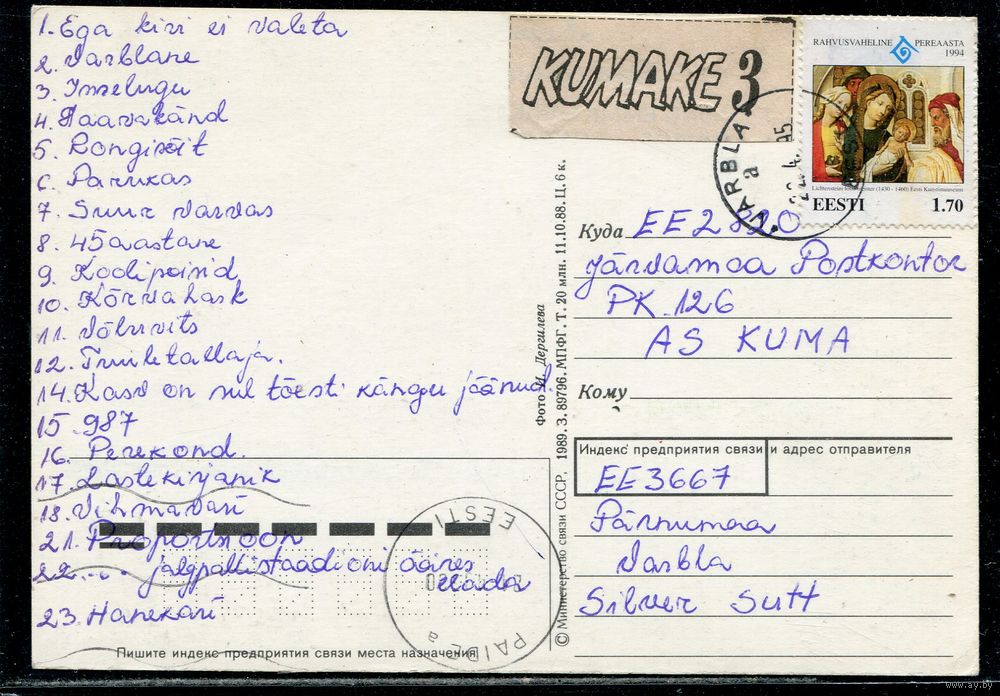 1. Ega kivi ei valeta
2. Varblane
3. Imelugu
4. Taavakänd
5. Rongisõit
6. Parukas
7. Suur varvas
8. 45aastane
9. Koolipoisid
10. Kõrvahask
11. Võluvits
12. Tuuletallaja.
14. Kasv on sul tõesti kängu jäänud.
15. 987
16. Perekond.
17. Lastekirjanik
18. Vihmavari
21. Proportsioon
22. ... jalgpallistaadioni ääres
elada
23. Hanekari
Пишите индекс предприятия связи места назначения
KUMAKE 3
RAHVUSVAHELINE PEREAASTA
1994
(1430 - 1460) Eesti Kunstimuuseum
EESTI 1.70
VARBLA
a
95
Куда EE2820
Järvamaa Postkontor
PK. 126
AS KUMA
Кому
Индекс предприятия связи и адрес отправителя
EE3667
Pärnumaa
Varbla
Silver Sutt
Фото И. Дергилева
© Министерство связи СССР. 1989. З. 89796. МПФГ. Т. 20 млн. 11.10.88. Ц. 6 к.
EESTI
PAIDE a
www.ay.by